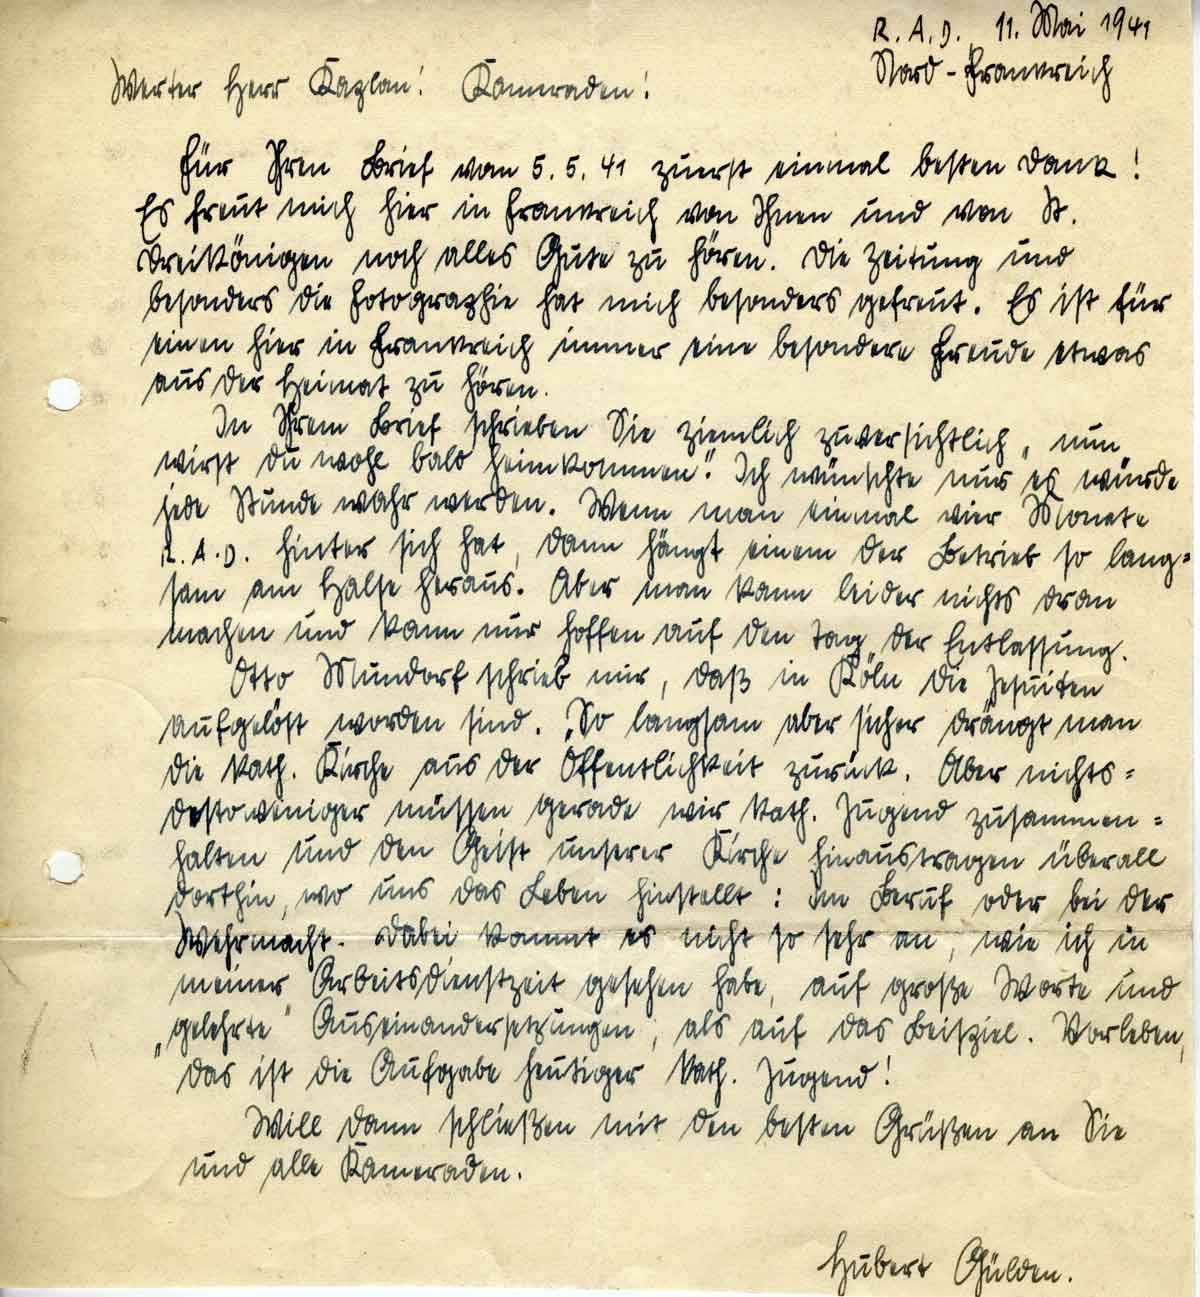 R.A.D. 11. Mai 1941
Nord-Frankreich
Werter Herr Kaplan! Kameraden!
Für Ihren Brief vom 5.5.41 zuerst einmal besten Dank!
Es freut mich hier in Frankreich von Ihnen und von St.
Dreikönigen noch alles Gute zu hören. Die Zeitung und
besonders die Fotographie hat mich besonders gefreut. Es ist für
einen hier in Frankreich immer eine besondere Freude etwas
aus der Heimat zu hören.
In Ihrem Brief schrieben Sie ziemlich zuversichtlich „nun
wirst du wohl bald heimkommen“. Ich wünschte nur es würde
jede Stunde wahr werden. Wenn man einmal vier Monate
R.A.D. hinter sich hat, dann hängt einem der Betrieb so lang=
sam am Halse heraus. Aber man kann leider nichts dran
machen und kann nur hoffen auf den Tag der Entlassung.
Otto Mundorf schrieb mir, daß in Köln die Jesuiten
aufgelöst worden sind. So langsam aber sicher drängt man
die kath. Kirche aus der Öffentlichkeit zurück. Aber nichts=
destoweniger müssen gerade wir kath. Jugend zusammen=
halten und den Geist unserer Kirche hinaustragen überall
dorthin, wo uns das Leben hinstellt: im Beruf oder bei der
Wehrmacht. Dabei kommt es nicht so sehr an, wie ich in
meiner Arbeitsdienstzeit gesehen habe, auf große Worte und
„gelehrte“ Auseinandersetzungen, als auf das Beispiel. Vorleben,
das ist die Aufgabe heutiger kath. Jugend!
Will dann schließen mit den besten Grüßen an Sie
und alle Kameraden.
Hubert Gülden.